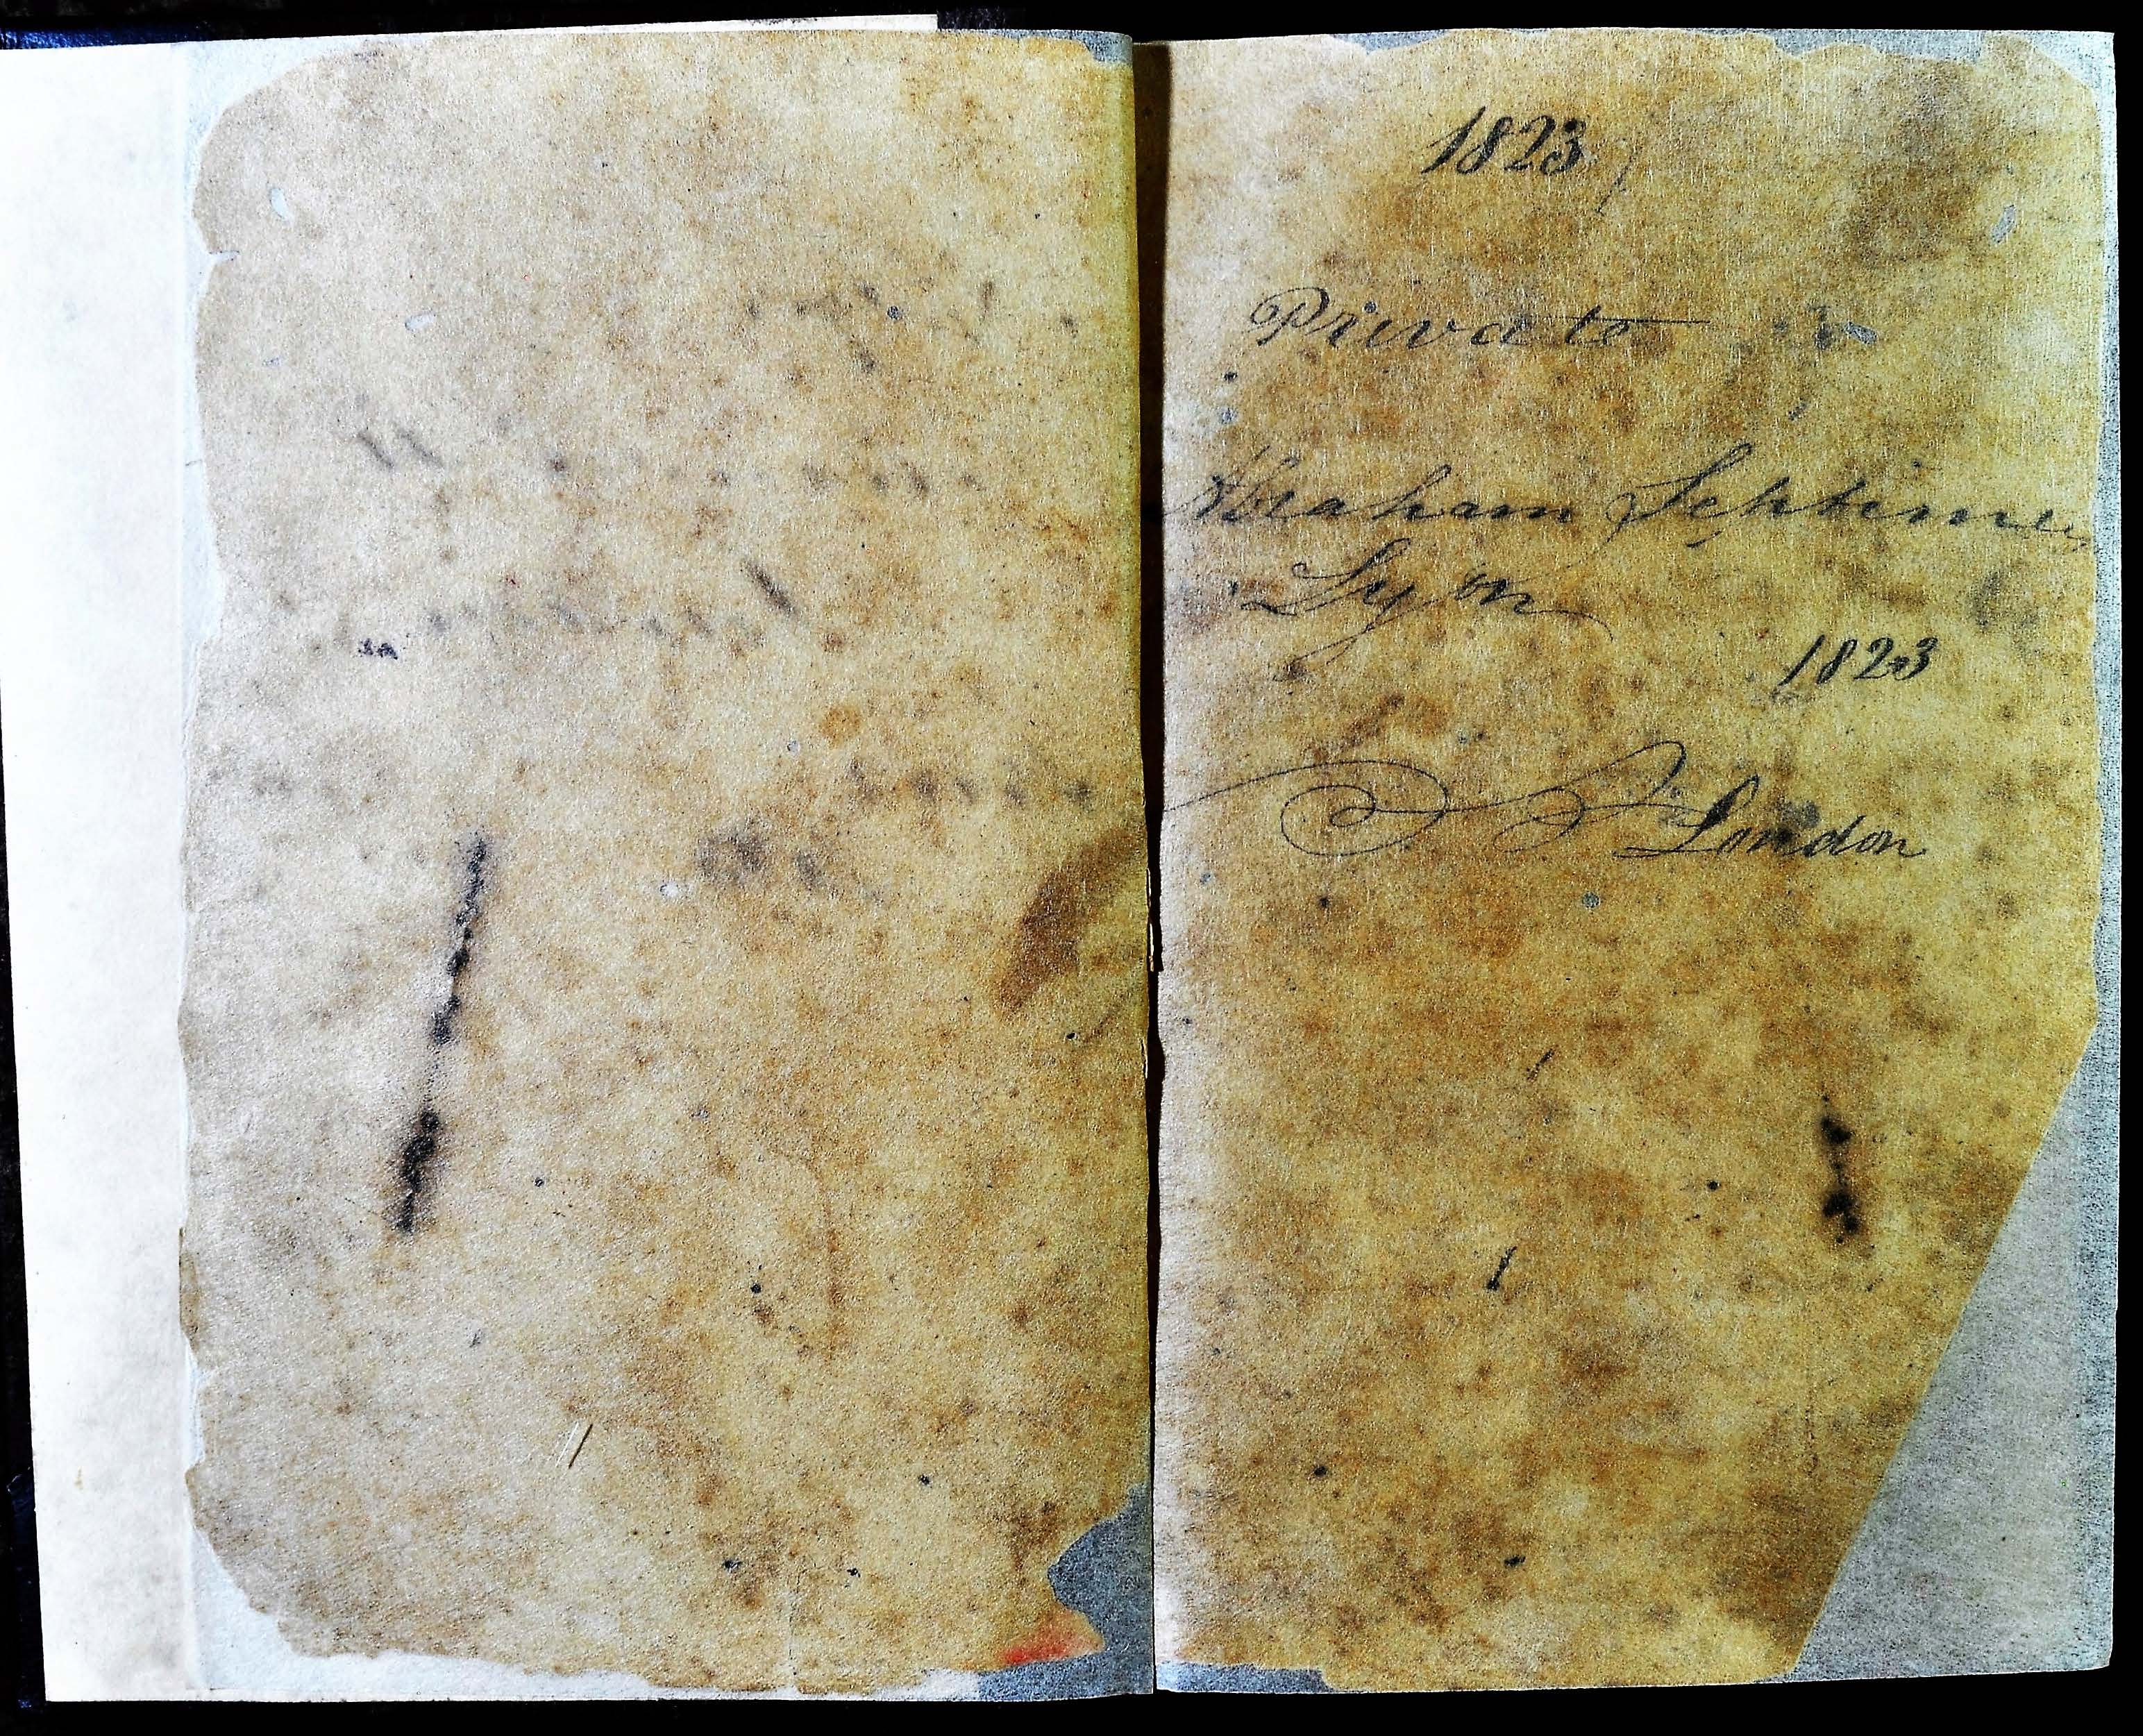 1823
Private
Abraham Septime
Lyon
1823
London